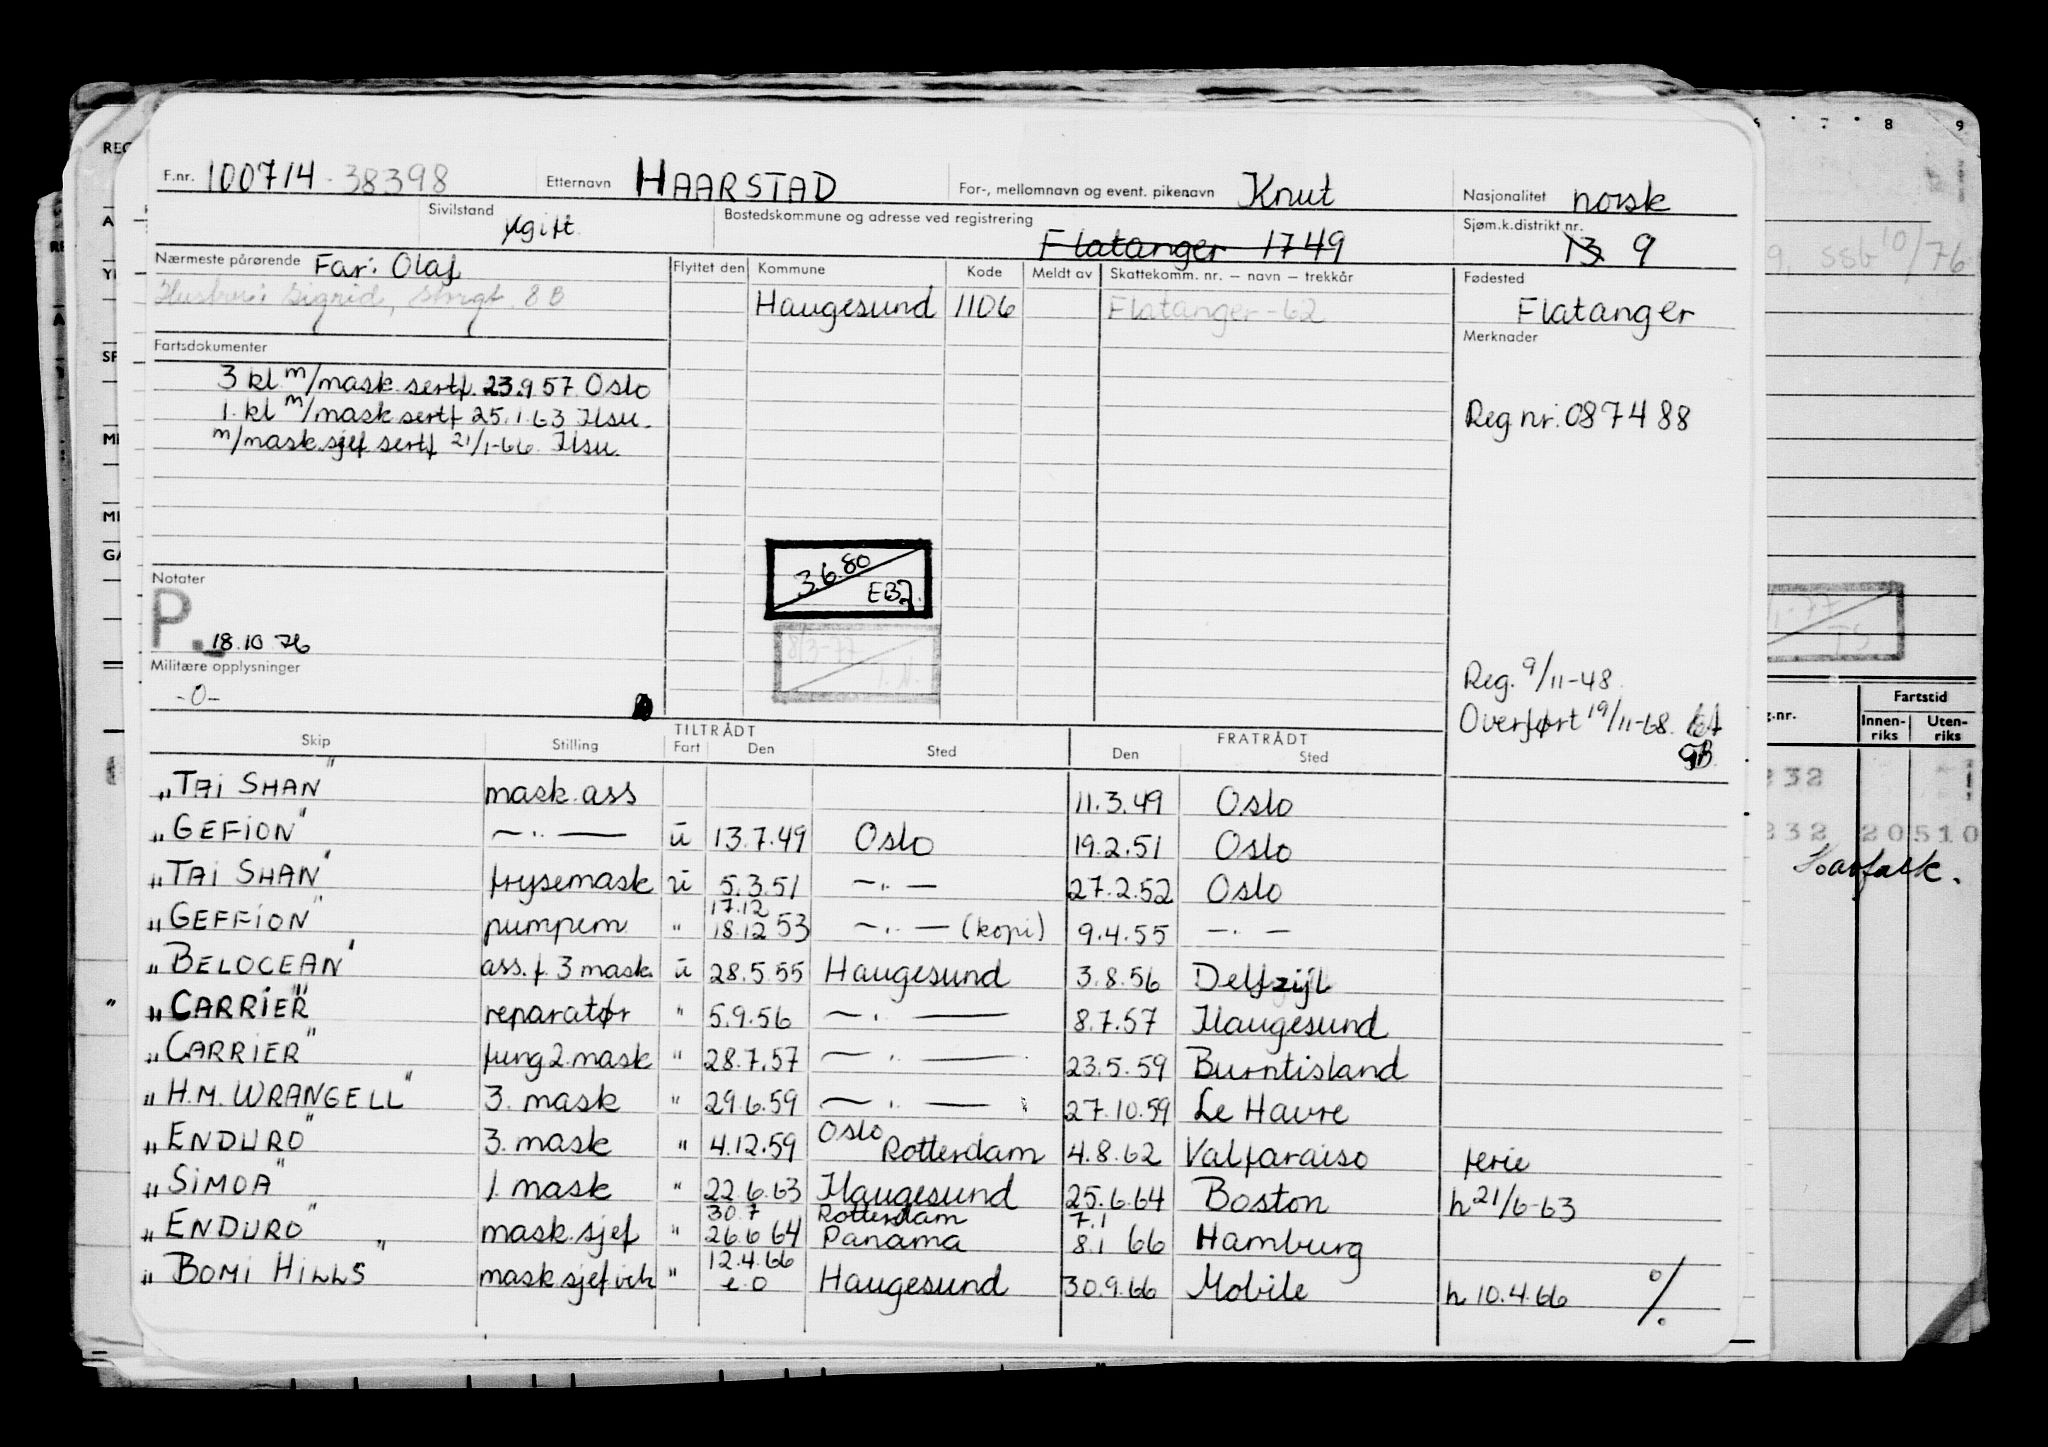 F.nr. 100714-38398 Etternavn HAARSTAD For-, mellomnavn og event. pikenavn Knut Nasjonalitet norsk
Sivilstand gift Bostedskommune og adresse ved registrering Flatanger 1749 Sjøm.k.distrikt nr. 13 9
Nærmeste pårørende Far: Olaf Flyttet den Kommune Kode Meldt av Skattekomm. nr. – navn – trekkår Fødested
Hustru: Sigrid, 8 B Haugesund 1106 Flatanger-62 Flatanger
Fartsdokumenter Merknader
3 kl m/mask.sertf. 23.9.57 Oslo
1. kl m/mask sertf 25.1.63 Hsu. Reg nr. 087488
m/mask.sjef sertf 21/1-66. Hsu.
3.6.80
EB
Notater
P. 18.10.76
8/3-77
Militære opplysninger
-0-
Reg. 9/11-48.
Overført 19/11-68.
Skip Stilling TILTRÅDT Fart Den Sted FRATRÅDT Den Sted
"TAI SHAN" mask.ass 11.3.49 Oslo
"GEFION" — " — u 13.7.49 Oslo 19.2.51 Oslo
"TAI SHAN" frysemask u 5.3.51 — " — 27.2.52 Oslo
"GEFFION" pumpem " 17.12 18.12 53 — " — (kopi) 9.4.55 — " —
"BELOCEAN" ass.f. 3 mask. u 28.5.55 Haugesund 3.8.56 Delfzijl
"CARRIER" reparatør " 5.9.56 — " — 8.7.57 Haugesund
"CARRIER" fung 2.mask " 28.7.57 — " — 23.5.59 Burntisland
"H.M. WRANGELL" 3. mask " 29.6.59 — " — 27.10.59 Le Havre
"ENDURO" 3. mask " 4.12.59 Oslo Rotterdam 4.8.62 Valparaiso ferie
"SIMOA" 1. mask " 22.6.63 Haugesund 25.6.64 Boston h 21/6-63
"ENDURO" mask.sjef " 30.7 26.6 64 Rotterdam Panama 7.1 8.1 66 Hamburg
"BOMI HILLS" mask sjef vik " 12.4.66 e.o Haugesund 30.9.66 Mobile h 10.4.66 %
7 8 9
ssb 10/76
Fartstid
Innen-riks Uten-riks
232
232 20510